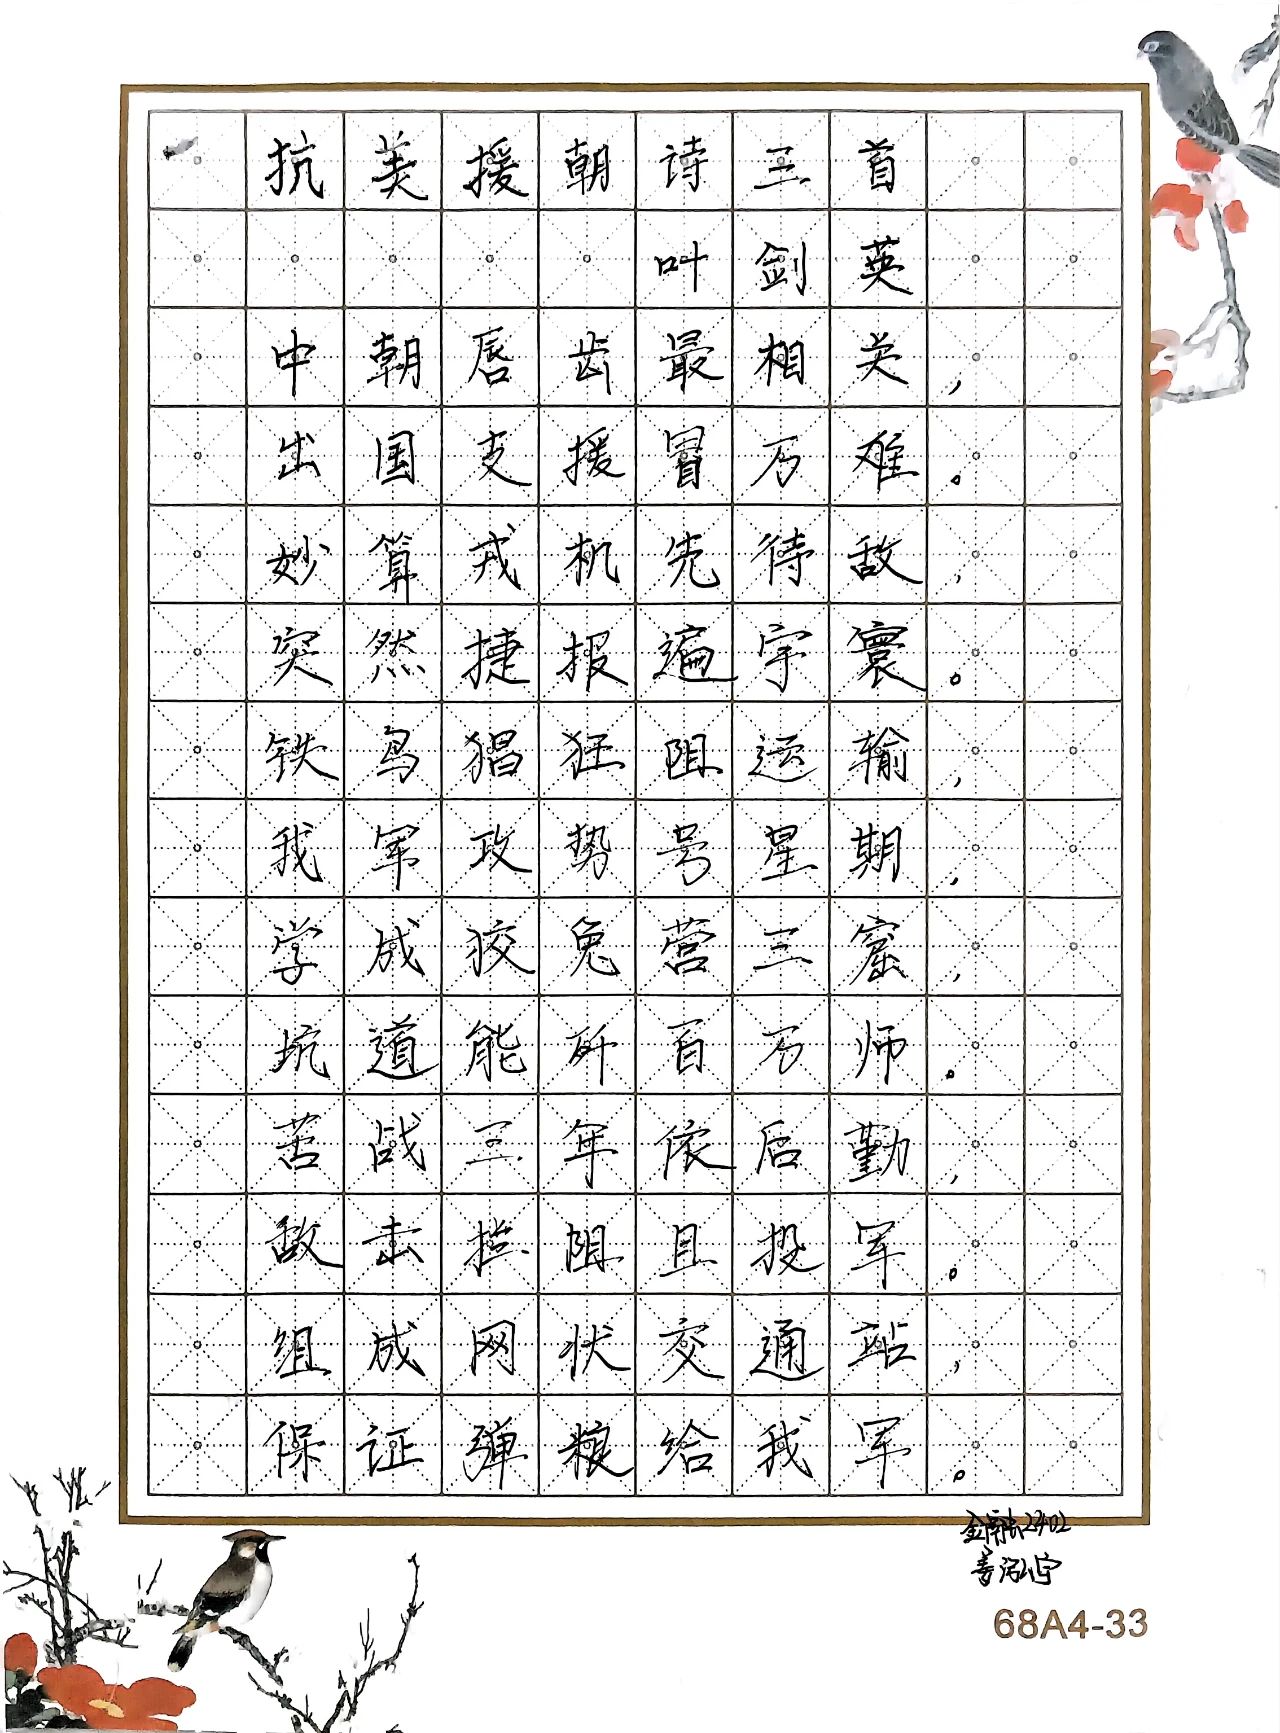 抗美援朝诗三首
叶剑英
中朝唇齿最相关，
出国支援冒万难。
妙算戎机先待敌，
突然捷报遍宇寰。
铁鸟猖狂阻运输，
我军攻势号星期，
学成狡兔营三窟，
坑道能歼百万师。
苦战三年依后勤，
敌击拦阻且投军。
组成网状交通站，
保证弹粮给我军。
2402
姜泓宇
68A4-33